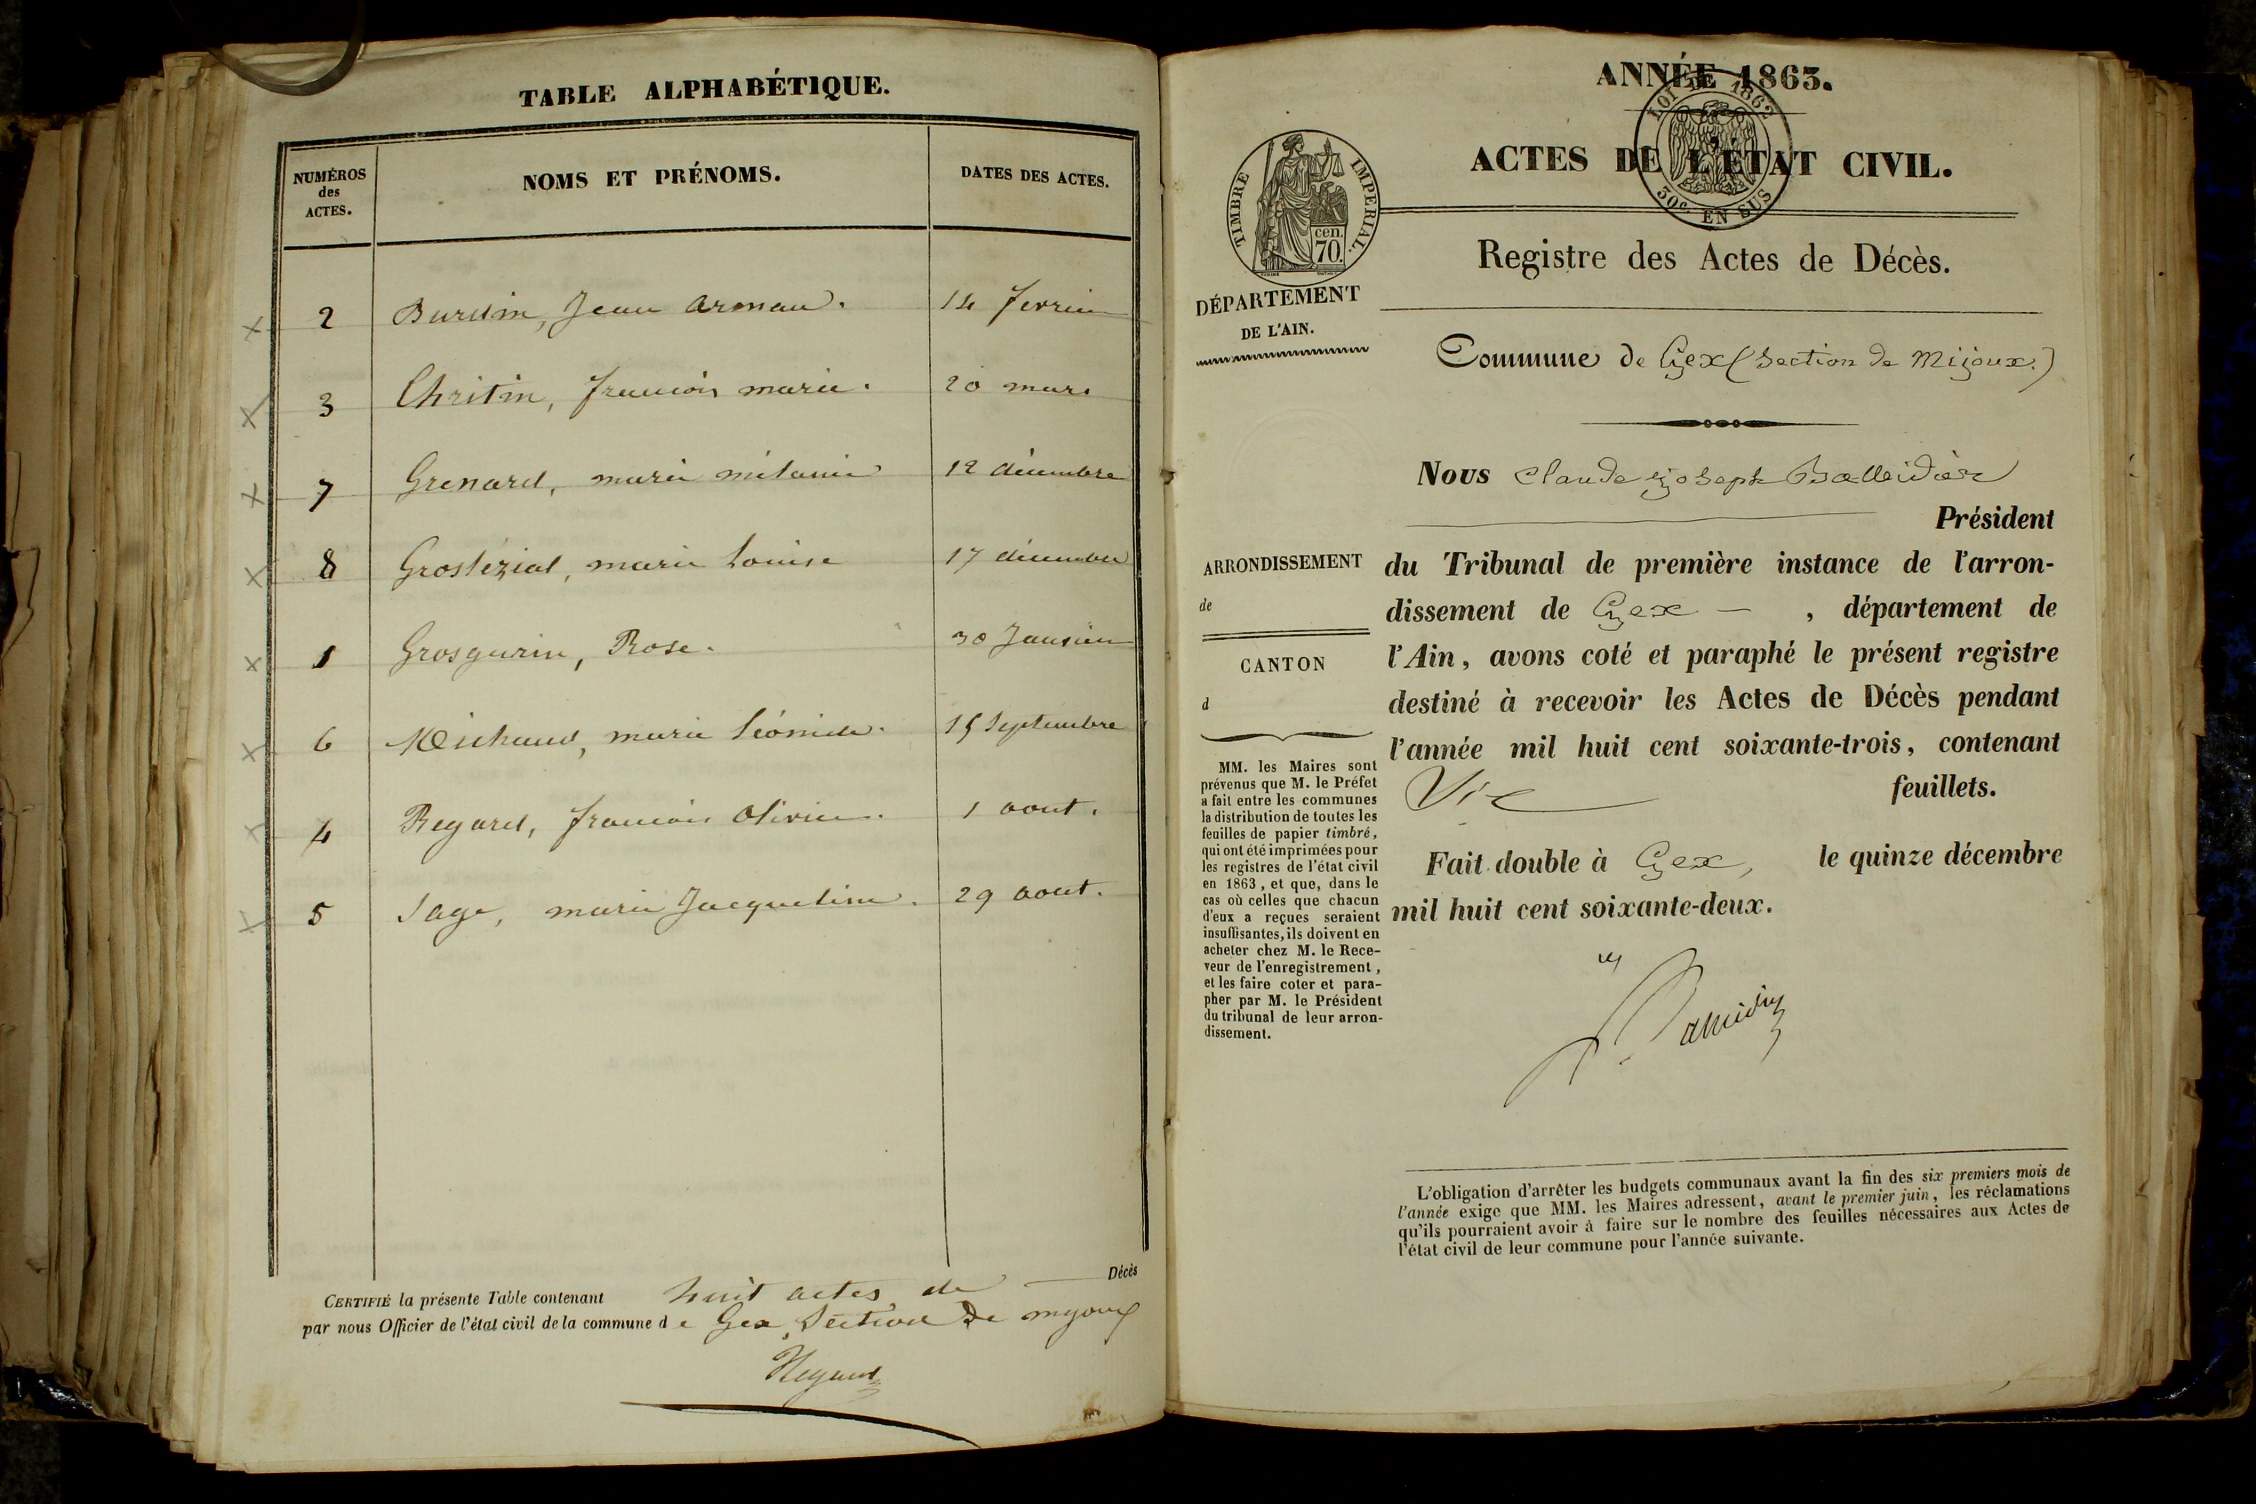 TABLE ALPHABÉTIQUE.
NUMÉROS
des
ACTES.
NOMS ET PRÉNOMS.
DATES DES ACTES.
2 Burdin, Jean arman. 14 fevrier
3 Chritin, francois marie. 20 mars
7 Grenard, marie mélanie 12 décembre
8 marie Louise 17 décembre
1 Grosgurin, Rose. 30 Janvier
6 Michaud, marie Léonide. 15 Septembre
4 Regard, francois Olivier. 1 aout.
5 Sage, marie Jacqueline. 29 aout.
CERTIFIÉ la présente Table contenant huit actes de Décès
par nous Officier de l'état civil de la commune de Gex, Section de mijoux
Regard
ANNÉE 1863.
LOI DE 1862
30c. EN SUS
ACTES DE L'ÉTAT CIVIL.
TIMBRE IMPERIAL.
cen.
70.
Registre des Actes de Décès.
DÉPARTEMENT
DE L'AIN.
Commune de Gex (Section de Mijoux.)
Nous Claude Joseph Balleidier
Président
du Tribunal de première instance de l'arron-
dissement de Gex — , département de
l'Ain, avons coté et paraphé le présent registre
destiné à recevoir les Actes de Décès pendant
l'année mil huit cent soixante-trois, contenant
feuillets.
Fait double à Gex, le quinze décembre
mil huit cent soixante-deux.
ARRONDISSEMENT
de
CANTON
d
MM. les Maires sont
prévenus que M. le Préfet
a fait entre les communes
la distribution de toutes les
feuilles de papier timbré,
qui ont été imprimées pour
les registres de l'état civil
en 1863, et que, dans le
cas où celles que chacun
d'eux a reçues seraient
insuffisantes, ils doivent en
acheter chez M. le Rece-
veur de l'enregistrement,
et les faire coter et para-
pher par M. le Président
du tribunal de leur arron-
dissement.
L'obligation d'arrêter les budgets communaux avant la fin des six premiers mois de
l'année exige que MM. les Maires adressent, avant le premier juin, les réclamations
qu'ils pourraient avoir à faire sur le nombre des feuilles nécessaires aux Actes de
l'état civil de leur commune pour l'année suivante.